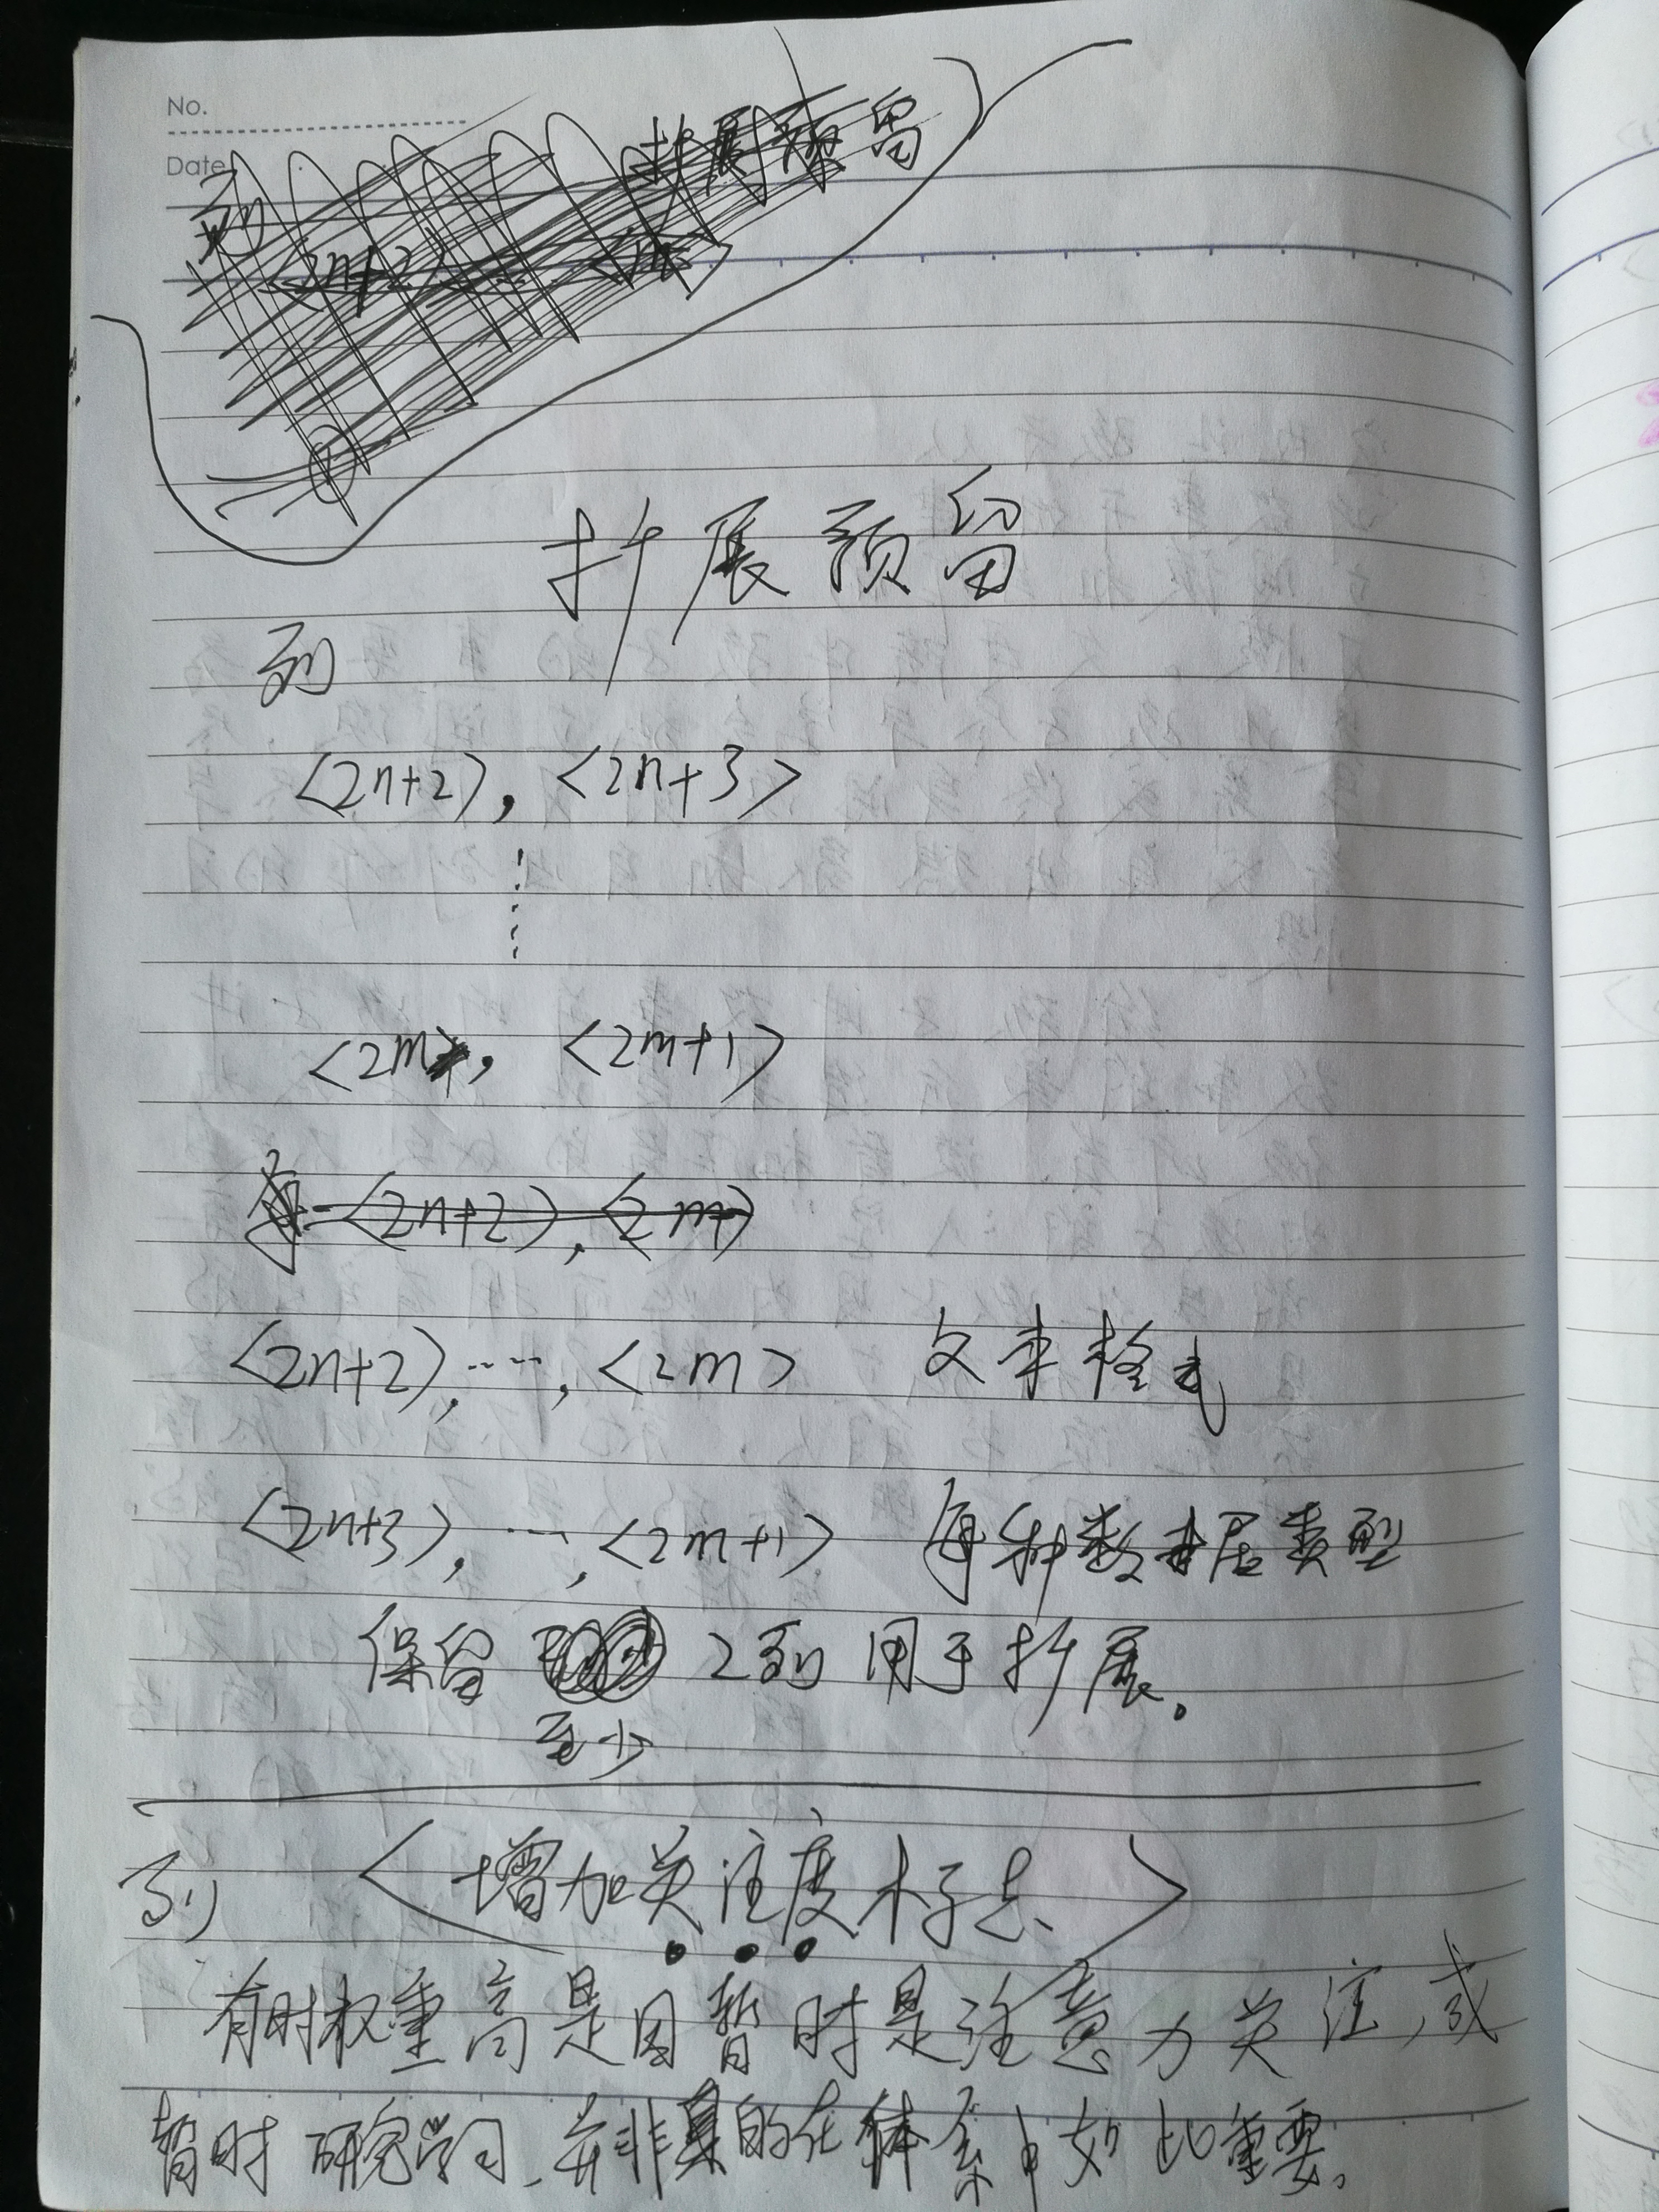 No.
Date
列 扩展预留
<2n+2>
扩展预留
列
<2n+2>, <2n+3>
<2m>, <2m+1>
每 <2n+2>, <2m>
<2n+2>, ……, <2m> 文本格式
<2n+3>, …, <2m+1> 每种数据类型
保留 2列 用于扩展。
至少
列 <增加关注度标志>
有时权重高是因暂时是注意力关注,或
暂时研究学习、并非真的在体系中如此重要。